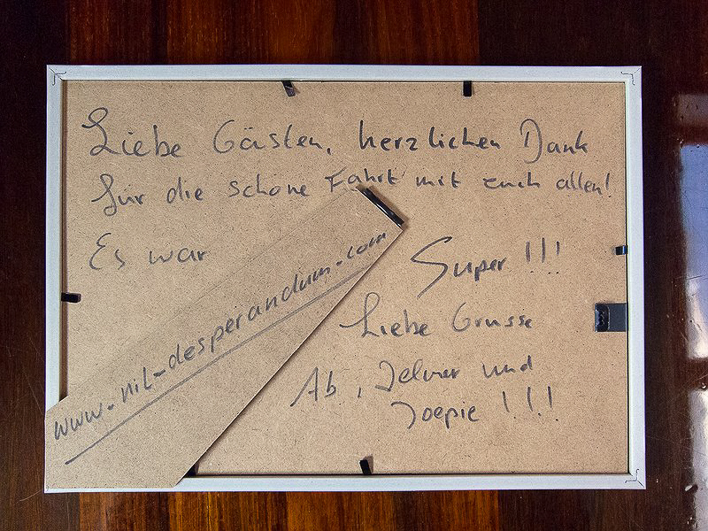 Liebe Gästen, herzlichen Dank
für die schöne Fahrt mit euch allen!
Es war
Super !!!
www.nil-desperandum.com
Liebe Grusse
Ab, Jelmer und
Joepie !!!